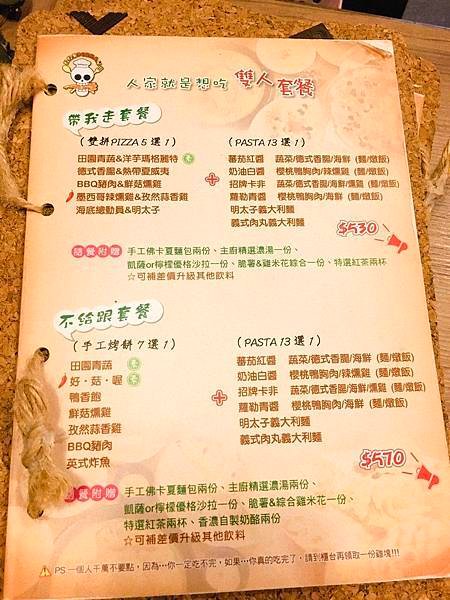 人家就是想吃 雙人套餐
帶我走套餐
(雙拼PIZZA 5 選 1)
田園青蔬&洋芋瑪格麗特 素
德式香腸&熱帶夏威夷
BBQ豬肉&鮮菇燻雞
墨西哥辣燻雞&孜然蒜香雞
海底總動員&明太子
+
(PASTA 13 選 1)
蕃茄紅醬 蔬菜/德式香腸/海鮮 (麵/燉飯)
奶油白醬 櫻桃鴨胸肉/辣燻雞 (麵/燉飯)
招牌卡非 蔬菜/德式香腸/海鮮/燻雞 (麵/燉飯)
蘿勒青醬 櫻桃鴨胸肉/海鮮 (麵/燉飯)
明太子義大利麵
義式肉丸義大利麵
$530
隨餐附贈 手工佛卡夏麵包兩份、主廚精選濃湯一份、
凱薩or檸檬優格沙拉一份、脆薯&雞米花綜合一份、特選紅茶兩杯
☆可補差價升級其他飲料
不給跟套餐
(手工烤餅 7 選 1)
田園青蔬 素
好·菇·喔 素
鴨香飽
鮮菇燻雞
孜然蒜香雞
BBQ豬肉
英式炸魚
+
(PASTA 13 選 1)
蕃茄紅醬 蔬菜/德式香腸/海鮮 (麵/燉飯)
奶油白醬 櫻桃鴨胸肉/辣燻雞 (麵/燉飯)
招牌卡非 蔬菜/德式香腸/海鮮/燻雞 (麵/燉飯)
蘿勒青醬 櫻桃鴨胸肉/海鮮 (麵/燉飯)
明太子義大利麵
義式肉丸義大利麵
$570
隨餐附贈 手工佛卡夏麵包兩份、主廚精選濃湯兩份、
凱薩or檸檬優格沙拉一份、脆薯&綜合雞米花一份、
特選紅茶兩杯、香濃自製奶酪兩份
☆可補差價升級其他飲料
PS 一個人千萬不要點，因為…你一定吃不完，如果…你真的吃完了，請到櫃台再領取一份雞塊!!!